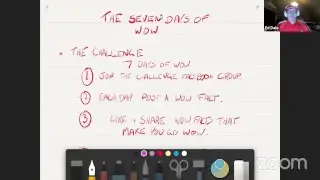 THE SEVEN DAYS OF
WOW
THE CHALLENGE
7 DAYS OF WOW
1 JOIN THE CHALLENGE FACEBOOK GROUP.
2 EACH DAY POST A WOW FACT.
3 LIKE + SHARE WOW FACTS THAT
MAKE YOU GO WOW.
zoom